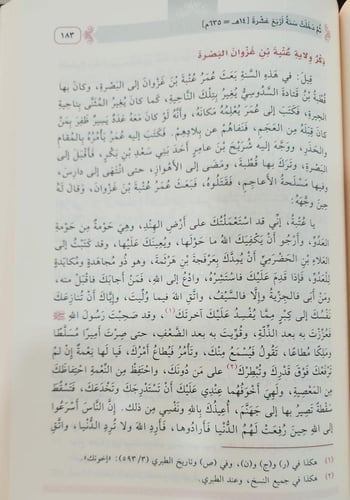 ثُمَّ دَخَلَتْ سَنَةُ أَرْبَعَ عَشْرَةَ [١٤هـ = ٦٣٥م]
١٨٣
ذِكْرُ وِلَايَةِ عُتْبَةَ بْنِ غَزْوَانَ البَصْرَةَ
قِيلَ: فِي هَذِهِ السَّنَةِ بَعَثَ عُمَرُ عُتْبَةَ بْنَ غَزْوَانَ إِلَى البَصْرَةِ، وَكَانَ بِهَا
قُطْبَةُ بْنُ قَتَادَةَ السَّدُوسِيُّ يُغِيرُ بِتِلْكَ النَّاحِيَةِ، كَمَا كَانَ يُغِيرُ المُثَنَّى بِنَاحِيَةِ
الحِيرَةِ، فَكَتَبَ إِلَى عُمَرَ يُعْلِمُهُ مَكَانَهُ، وَأَنَّهُ لَوْ كَانَ مَعَهُ عَدَدٌ يَسِيرٌ ظَفِرَ بِمَنْ
كَانَ قِبَلَهُ مِنَ العَجَمِ، فَنَفَاهُمْ عَنْ بِلَادِهِمْ. فَكَتَبَ إِلَيْهِ عُمَرُ يَأْمُرُهُ بِالمُقَامِ
وَالحَذَرِ، وَوَجَّهَ إِلَيْهِ شُرَيْحَ بْنَ عَامِرٍ أَحَدَ بَنِي سَعْدِ بْنِ بَكْرٍ، فَأَقْبَلَ إِلَى
البَصْرَةِ، وَتَرَكَ بِهَا قُطْبَةَ، وَمَضَى إِلَى الأَهْوَازِ، حَتَّى انْتَهَى إِلَى دَارِسَ،
وَفِيهَا مَسْلَحَةُ الأَعَاجِمِ، فَقَتَلُوهُ، فَبَعَثَ عُمَرُ عُتْبَةَ بْنَ غَزْوَانَ، وَقَالَ لَهُ
حِينَ وَجَّهَهُ:
يَا عُتْبَةُ، إِنِّي قَدِ اسْتَعْمَلْتُكَ عَلَى أَرْضِ الهِنْدِ، وَهِيَ حَوْمَةٌ مِنْ حَوْمَةِ
العَدُوِّ، وَأَرْجُو أَنْ يَكْفِيَكَ اللهُ مَا حَوْلَهَا، وَيُعِينَكَ عَلَيْهَا، وَقَدْ كَتَبْتُ إِلَى
العَلَاءِ بْنِ الحَضْرَمِيِّ أَنْ يُمِدَّكَ بِعَرْفَجَةَ بْنِ هَرْثَمَةَ، وَهُوَ ذُو مُجَاهَدَةٍ وَمُكَايَدَةٍ
لِلْعَدُوِّ، فَإِذَا قَدِمَ عَلَيْكَ فَاسْتَشِرْهُ، وَادْعُ إِلَى اللهِ، فَمَنْ أَجَابَكَ فَاقْبَلْ مِنْهُ،
وَمَنْ أَبَى فَالجِزْيَةُ وَإِلَّا فَالسَّيْفُ، وَاتَّقِ اللهَ فِيمَا وُلِّيتَ، وَإِيَّاكَ أَنْ تُنَازِعَكَ
نَفْسُكَ إِلَى كِبْرٍ مِمَّا يُفْسِدُ عَلَيْكَ آخِرَتَكَ(١)، وَقَدْ صَحِبْتَ رَسُولَ اللهِ ﷺ
فَعَزَزْتَ بِهِ بَعْدَ الذِّلَّةِ، وَقَوِيتَ بِهِ بَعْدَ الضَّعْفِ، حَتَّى صِرْتَ أَمِيرًا مُسَلَّطًا
وَمَلِكًا مُطَاعًا، تَقُولُ فَيُسْمَعُ مِنْكَ، وَتَأْمُرُ فَيُطَاعُ أَمْرُكَ، فَيَا لَهَا نِعْمَةً إِنْ لَمْ
تَرْفَعْكَ فَوْقَ قَدْرِكَ وَتُبْطِرْكَ(٢) عَلَى مَنْ دُونَكَ، وَاحْتَفِظْ مِنَ النِّعْمَةِ احْتِفَاظَكَ
مِنَ المَعْصِيَةِ، وَلَهِيَ أَخْوَفُهُمَا عِنْدِي عَلَيْكَ أَنْ تَسْتَدْرِجَكَ وَتَخْدَعَكَ، فَتَسْقُطَ
سَقْطَةً تَصِيرُ بِهَا إِلَى جَهَنَّمَ، أُعِيذُكَ بِاللهِ وَنَفْسِي مِنْ ذَلِكَ. إِنَّ النَّاسَ أَسْرَعُوا
إِلَى اللهِ حِينَ رُفِعَتْ لَهُمُ الدُّنْيَا فَأَرَادُوهَا، فَأَرِدِ اللهَ وَلَا تُرِدِ الدُّنْيَا، وَاتَّقِ
(١) هكذا في (ر) و(ح) و(ن)، وفي (ص) وتاريخ الطبري (٣/ ٥٩٣): «إخوتك».
(٢) هكذا في جميع النسخ، وعند الطبري: